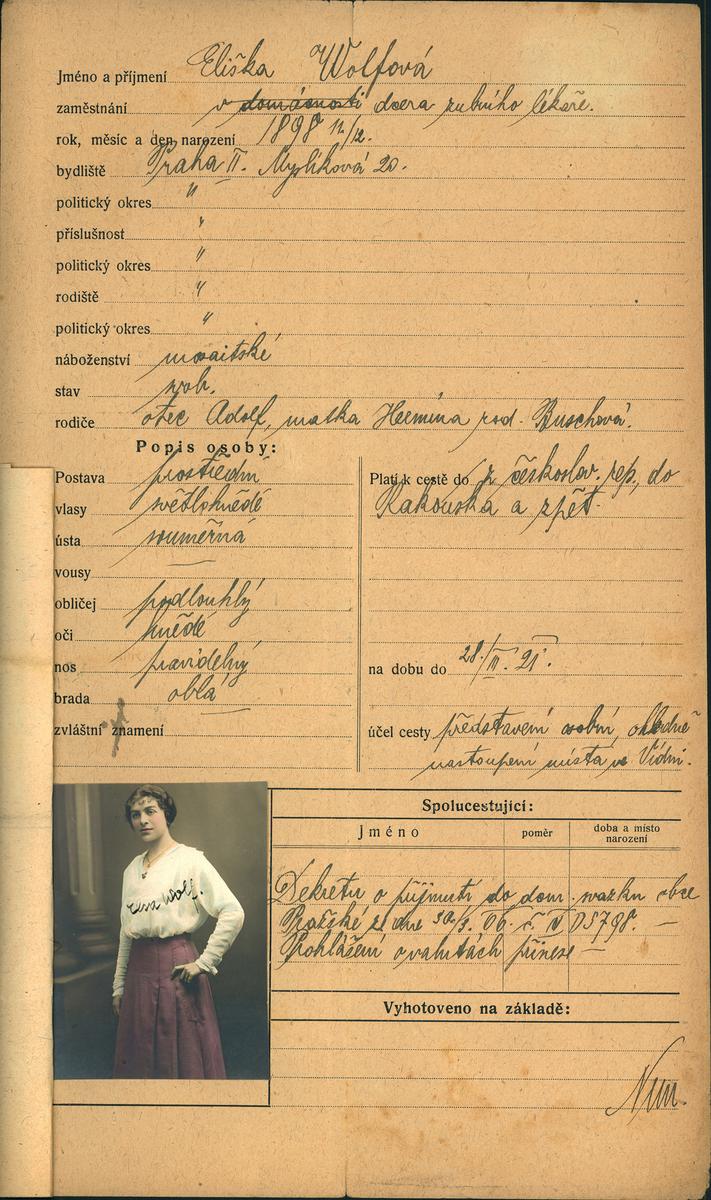 Jméno a příjmení Eliška Wolfová
zaměstnání v domácnosti dcera zubního lékaře.
rok, měsíc a den narození 1898 11/12.
bydliště Praha II. Myslíková 20.
politický okres "
příslušnost "
politický okres "
rodiště "
politický okres "
náboženství mosaitské
stav svob.
rodiče otec Adolf, matka Hermína rod. Buschová.
Popis osoby:
Postava prostřední
vlasy světlohnědé
ústa souměrná
vousy —
obličej podlouhlý
oči hnědé
nos pravidelný
brada oblá
zvláštní znamení
Platí k cestě do z českoslov. rep., do
Rakouska a zpět.
na dobu do 28./III. 21.
účel cesty představení osobní, ohledně
nastoupení místa ve Vídni.
Elsa Wolf.
Spolucestující:
Jméno poměr doba a místo
narození
Dekretu o přijmutí do dom. svazku obce
Pražské ze dne 30./3. 06. č. D5798. —
Prohlášení o valutách přinese —
Vyhotoveno na základě: